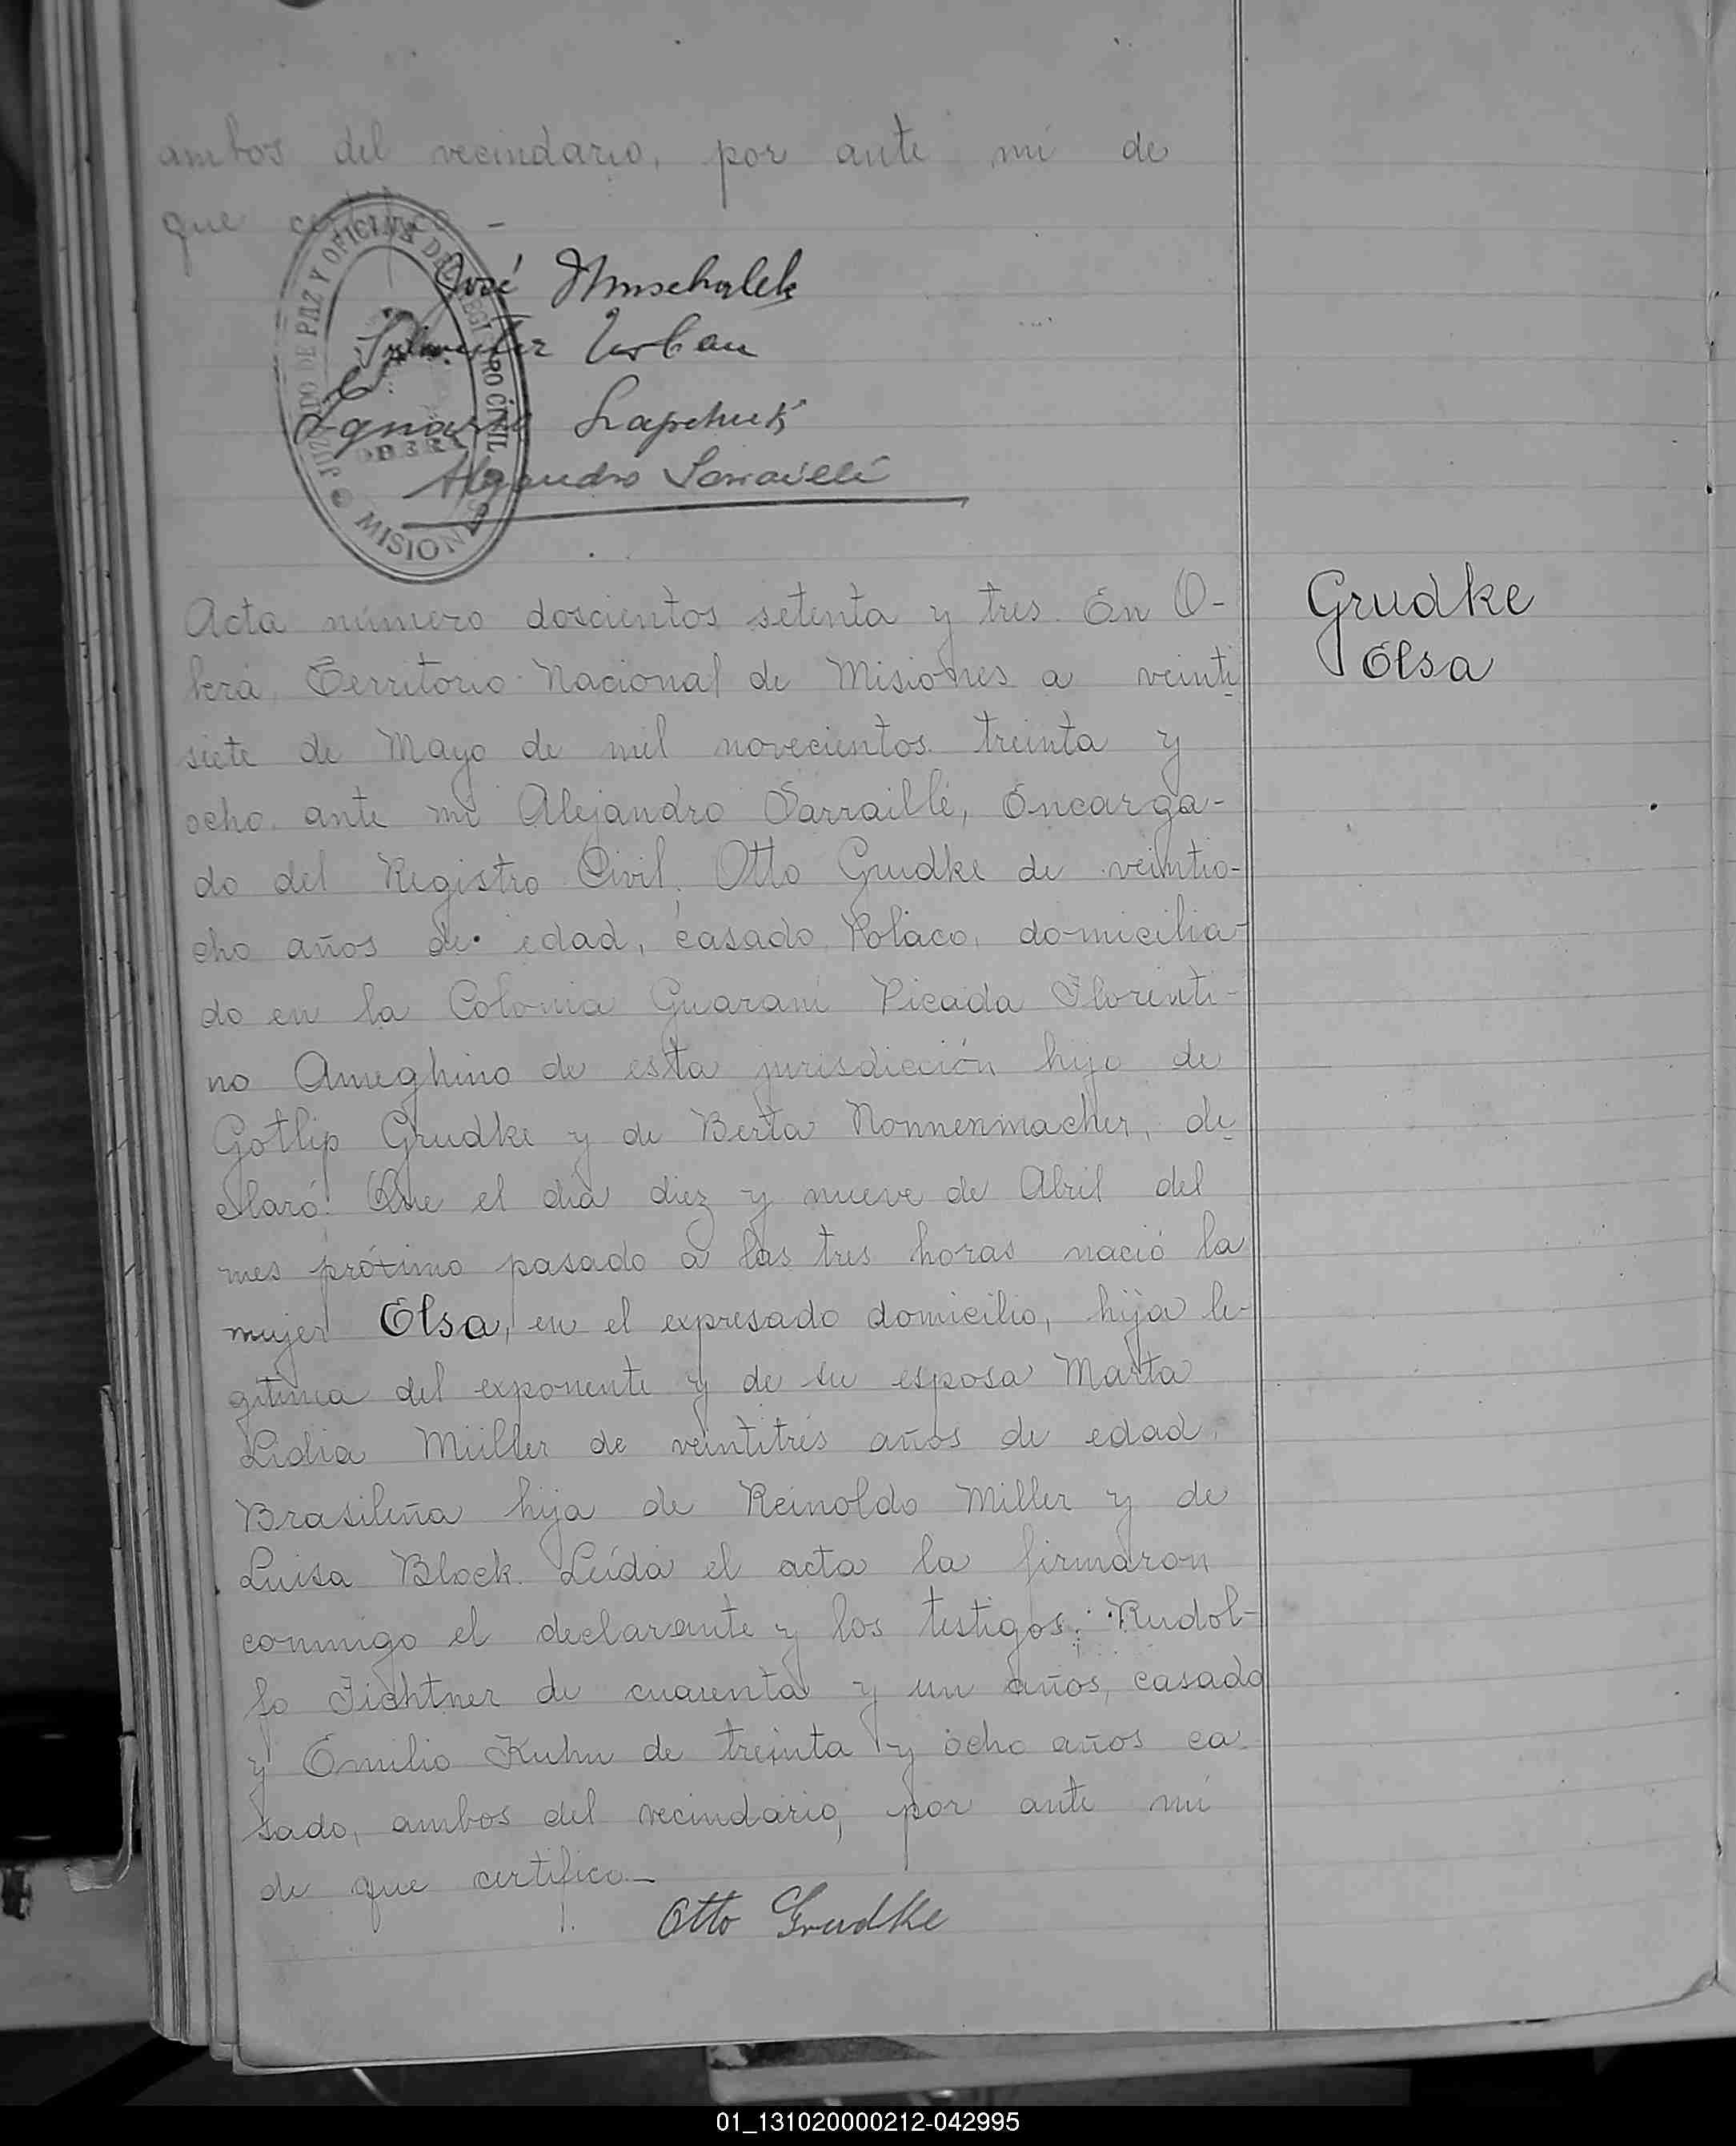 ambos del vecindario, por ante mí de
que certifico -
JUZGADO DE PAZ Y OFICINA DEL REGISTRO CIVIL
OBERA
MISIONES
José Muschalek
Urban
Alejandro Sarraillé
Acta número doscientos setenta y tres. En O-
berá, Territorio Nacional de Misiones a veinti-
siete de Mayo de mil novecientos treinta y
ocho, ante mí Alejandro Sarraillé, Encarga-
do del Registro Civil, Otto Grudke de veintio-
cho años de edad, casado, Polaco, domicilia-
do en la Colonia Guaraní Picada Florenti-
no Ameghino de esta jurisdicción hijo de
Gotlip Grudke y de Berta Nonnenmacher, de-
claró: Que el día diez y nueve de Abril del
mes próximo pasado a las tres horas nació la
mujer Elsa, en el expresado domicilio, hija le-
gitima del exponente y de su esposa Marta
Lidia Müller de veintitrés años de edad,
Brasileña hija de Reinoldo Miller y de
Luisa Block. Leída el acta la firmaron
conmigo el declarante y los testigos: Rudol-
fo Fichtner de cuarenta y un años, casado
y Emilio Kuhn de treinta y ocho años ca-
sado, ambos del vecindario, por ante mí
de que certifico-
Otto Grudke
Grudke
Elsa
01_131020000212-042995